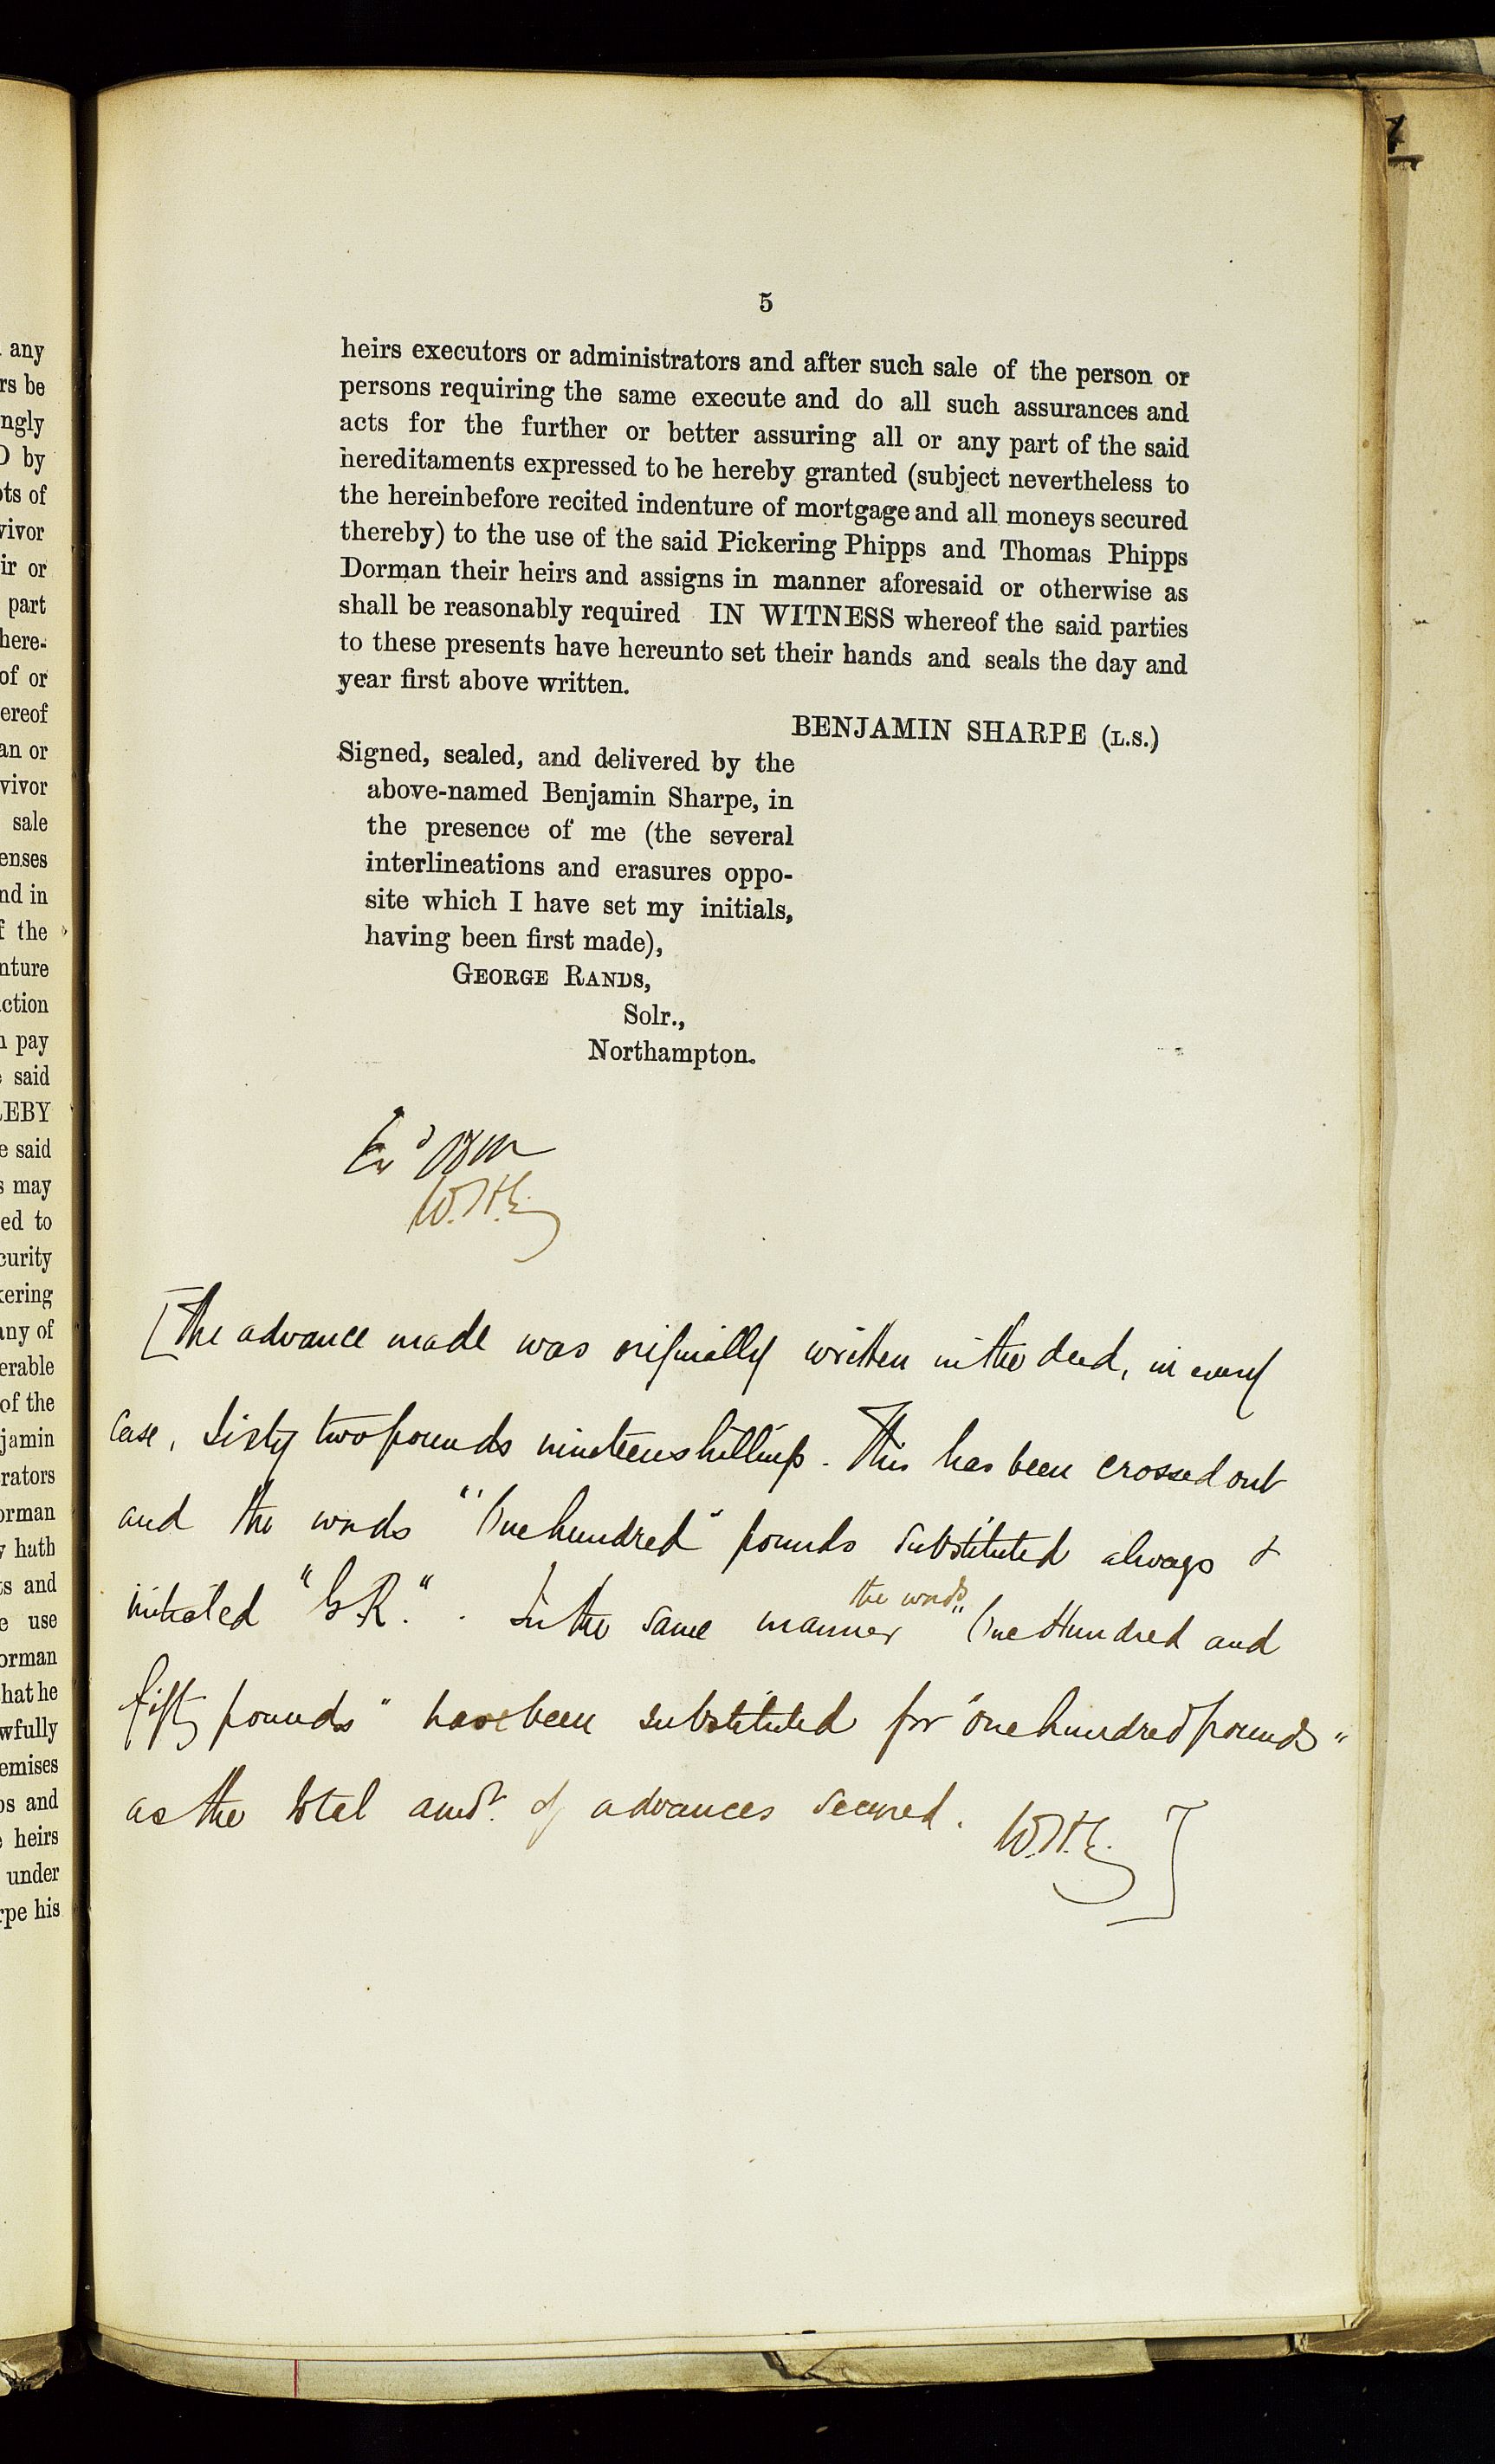 5
heirs executors or administrators and after such sale of the person or
persons requiring the same execute and do all such assurances and
acts for the further or better assuring all or any part of the said
hereditaments expressed to be hereby granted (subject nevertheless to
the hereinbefore recited indenture of mortgage and all moneys secured
thereby) to the use of the said Pickering Phipps and Thomas Phipps
Dorman their heirs and assigns in manner aforesaid or otherwise as
shall be reasonably required IN WITNESS whereof the said parties
to these presents have hereunto set their hands and seals the day and
year first above written.
BENJAMIN SHARPE (L.S.)
Signed, sealed, and delivered by the
above-named Benjamin Sharpe, in
the presence of me (the several
interlineations and erasures oppo-
site which I have set my initials,
having been first made),
GEORGE RANDS,
Solr.,
Northampton.
W.H.E.
[The advance made was originally written in the deed, in every
case, Sixty two pounds nineteen shillings. This has been crossed out
and the words "One hundred" pounds substituted always &
initialed "G.R.". In the same manner the words "One Hundred and
fifty pounds" have been substituted for "one hundred pounds"
as the total amot. of advances secured. W.H.E.]
any
rs be
ngly
D by
ots of
vivor
ir or
part
here-
of or
ereof
an or
vivor
sale
enses
nd in
f the
nture
ction
n pay
said
LEBY
e said
s may
ed to
curity
kering
any of
erable
of the
jamin
rators
orman
y hath
ts and
e use
orman
that he
wfully
emises
ps and
heirs
under
rpe his